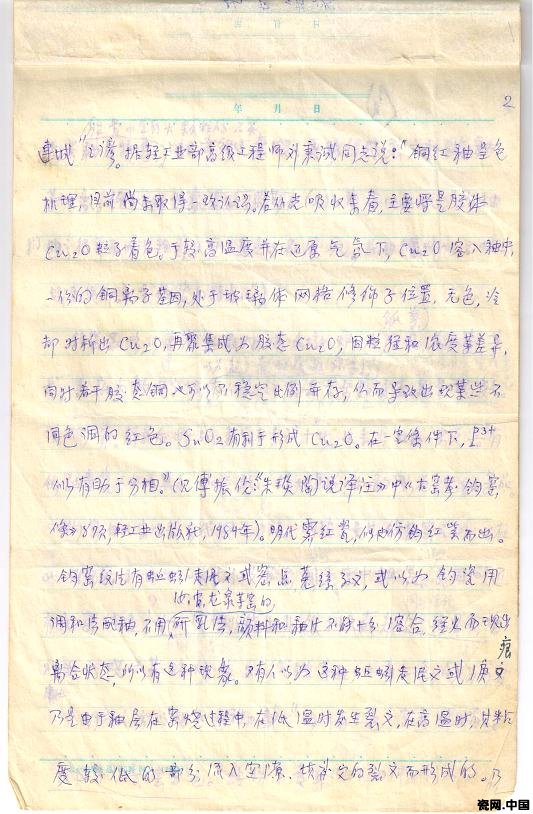 年 月 日
2
连城"之谬。据轻工业部高级工程师刘秉诚同志说:"铜红釉呈色
机理,目前尚未取得一致认识。若仍光吸收来看,主要将是胶体
Cu₂O粒子着色。于较高温度并在还原气氛下,Cu₂O溶入釉中,
一价的铜离子基团,处于玻璃体网络修饰子位置,无色,冷
却时析出Cu₂O,再聚集成为胶态Cu₂O,因粒径和浓度等差异,
同时若干胶态铜也可以不稳定比例并存,从而导致出现某些不
同色调的红色。SnO₂有利于形成Cu₂O。在一定条件下,P³⁺
似有助于分相。"(见傅振伦:《朱琰陶说译注》中《古窑考·钧窑
条》87页,轻工业出版社,1984年)。明代霁红瓷,似为仿钧红瓷而出。
钧窑纹片有蚯蚓走泥文或 菟丝文,或以为钧瓷用
汝、官、龙泉等窑的
调和 釉,不用 乳浊,颜料和釉汁不能十分溶合,经火而现出
离合状态,所以有这种现象。有人以为这种蚯蚓走泥文或 痕文
乃是由于釉层在窑烧过程中,在低温时发生裂文,在高温时,其粘
度较低的部分流入空隙、填补它的裂文而形成的。乃
瓷网.中国